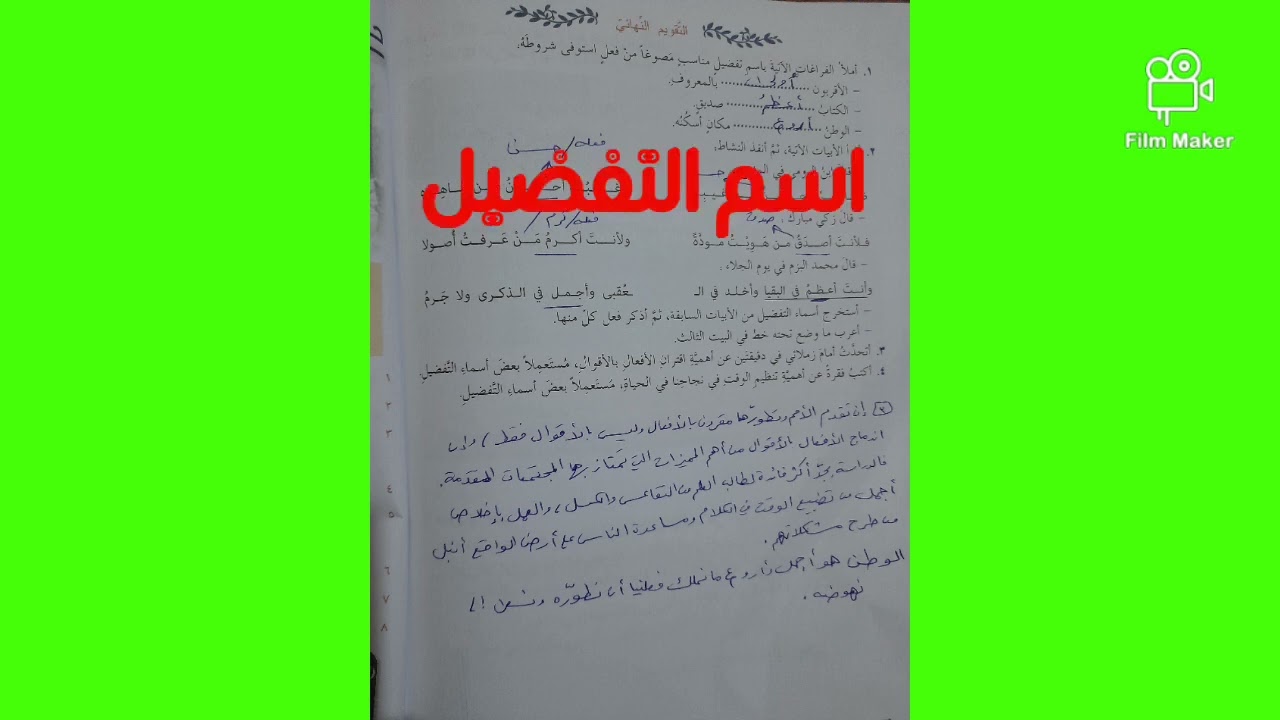 التَّقويم النِّهائيّ
١. أملأ الفراغات الآتيةَ باسمِ تفضيلٍ مناسبٍ مَصوغاً منْ فعلٍ استوفى شروطَهُ.
– الأقربون أولى بالمعروف.
– الكتابُ أعظمُ صديقٍ.
– الوطنُ أروع مكانٍ أسكُنُه.
الأبيات الآتية، ثمَّ أنفذ النشاط:
فعله/ حسن
اسم التّفضيل
– قال زكي مبارك:
صدق
فعله/ كرم/
فلأنتَ أصدَقُ مَنْ هَوِيْتُ مَودَّةً ولأنتَ أكرمُ مَنْ عَرفتُ أُصولا
– قالَ محمد البزم في يوم الجلاء:
وأنتَ أعظمُ في البقيا وأخلد في الـ ـعُقبى وأجمل في الذكرى ولا جَرمُ
– أستخرج أسماء التفضيل من الأبيات السابقة، ثمَّ أذكر فعل كلٍّ منها.
– أعرب ما وضع تحته خط في البيت الثالث.
٣. أتحدَّثُ أمامَ زملائي في دقيقتَين عن أهميَّةِ اقترانِ الأفعالِ بالأقوالِ، مُستَعمِلاً بعضَ أسماءِ التَّفضيلِ.
٤. أكتبُ فقرةً عن أهميَّةِ تنظيمِ الوقتِ في نجاحِنا في الحياةِ، مُستَعمِلاً بعضَ أسماءِ التَّفضيلِ.
٣ إن تقدم الأمم وتطورها مقرون بالأفعال وليس بالأقوال فقط، وإن
اندماج الأفعال بالأقوال من أهم الميزات التي تمتاز بها المجتمعات المتقدمة.
فالدراسة بجدّ أكثر فائدة لطالب العلم من التقاعس والكسل، والعمل بإخلاص
أجمل من تضييع الوقت في الكلام ومساعدة الناس على أرض الواقع أنبل
من طرح مشكلاتهم.
الوطن هو أجمل وأروع ما نملك فعلينا أن نطوّره ونسعى إلى
نهوضه.
١
٢
٣
٤
٥
٦
٧
٨
Film Maker